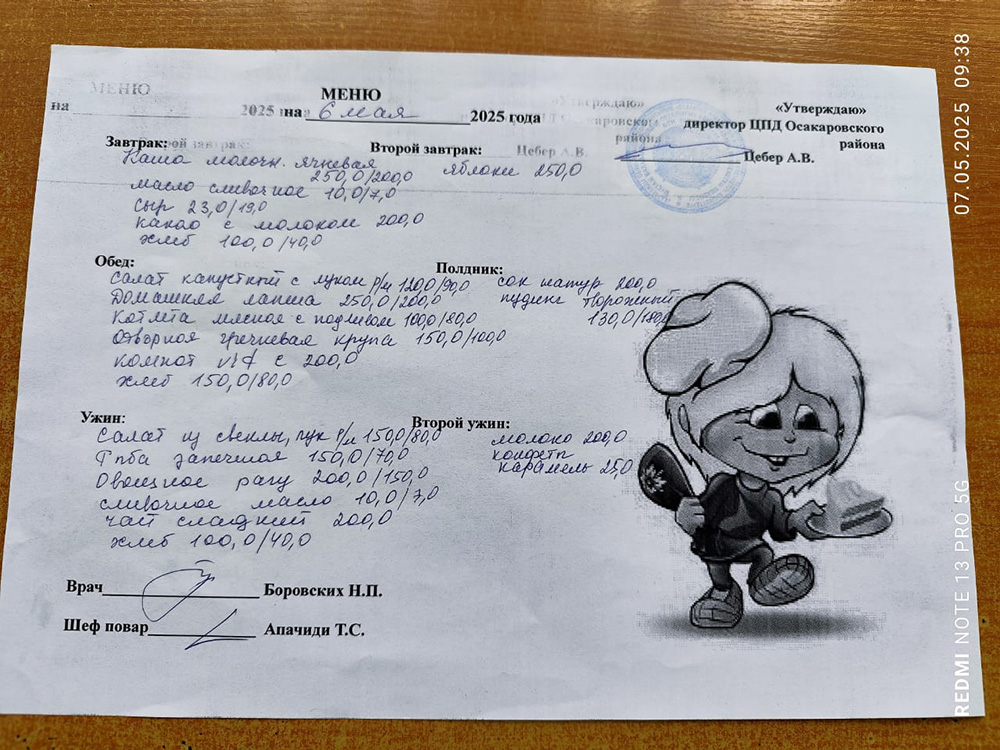 МЕНЮ
МЕНЮ
на
2025
на 6 мая 2025 года
«Утверждаю»
«Утверждаю»
директор ЦПД Осакаровского
района
района
Цебер А.В.
Цебер А.В.
Завтрак:
Каша молочн. ячневая
250,0/200,0
масло сливочное 10,0/7,0
сыр 23,0/19,0
какао с молоком 200,0
хлеб 100,0/40,0
Второй завтрак:
яблоки 250,0
Обед:
Салат капустный с луком р/м 120,0/90,0
Домашняя лапша 250,0/200,0
Котлета мясная с подливом 100,0/80,0
Отворная гречневая крупа 150,0/100,0
компот с 200,0
хлеб 150,0/80,0
Полдник:
сок натур 200,0
пудинг творожный
130,0/180,0
Ужин:
Салат из свеклы, лук р/м 150,0/80,0
Рыба запечная 150,0/70,0
Овощное рагу 200,0/150,0
сливочное масло 10,0/7,0
чай сладкий 200,0
хлеб 100,0/40,0
Второй ужин:
молоко 200,0
конфеты
карамель 25,0
Врач Боровских Н.П.
Шеф повар Апачиди Т.С.
07.05.2025 09:38
REDMI NOTE 13 PRO 5G